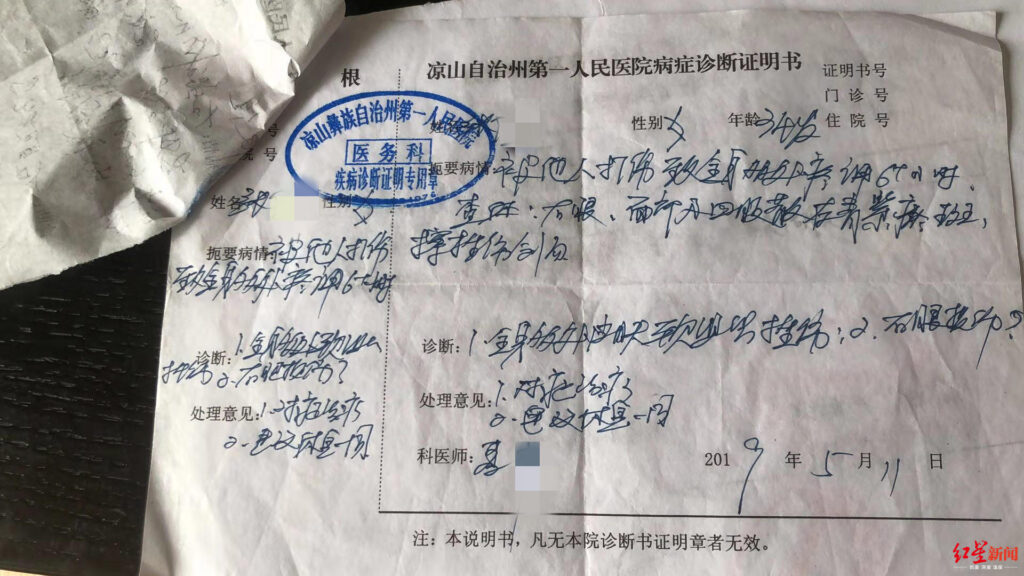 根
号
号
姓名 张 性别 女
扼要病情：被他人打伤
致全身多处疼痛6小时
诊断：1.全身多处软组织
挫伤 2.右眼挫伤？
处理意见：1.对症治疗
2.建议休息一周
凉山彝族自治州第一人民医院
医务科
疾病诊断证明专用章
凉山自治州第一人民医院病症诊断证明书
证明书号
门诊号
性别 女 年龄 34岁 住院号
扼要病情：被他人打伤致全身多处疼痛6小时.
查体：右眼、面部及四肢散在青紫瘀斑，
诊断：1.全身多处皮肤软组织挫伤；2.右眼挫伤？
处理意见：1.对症治疗
2.建议休息一周
科医师：
2019年5月11日
注：本说明书，凡无本院诊断书证明章者无效。
红星新闻